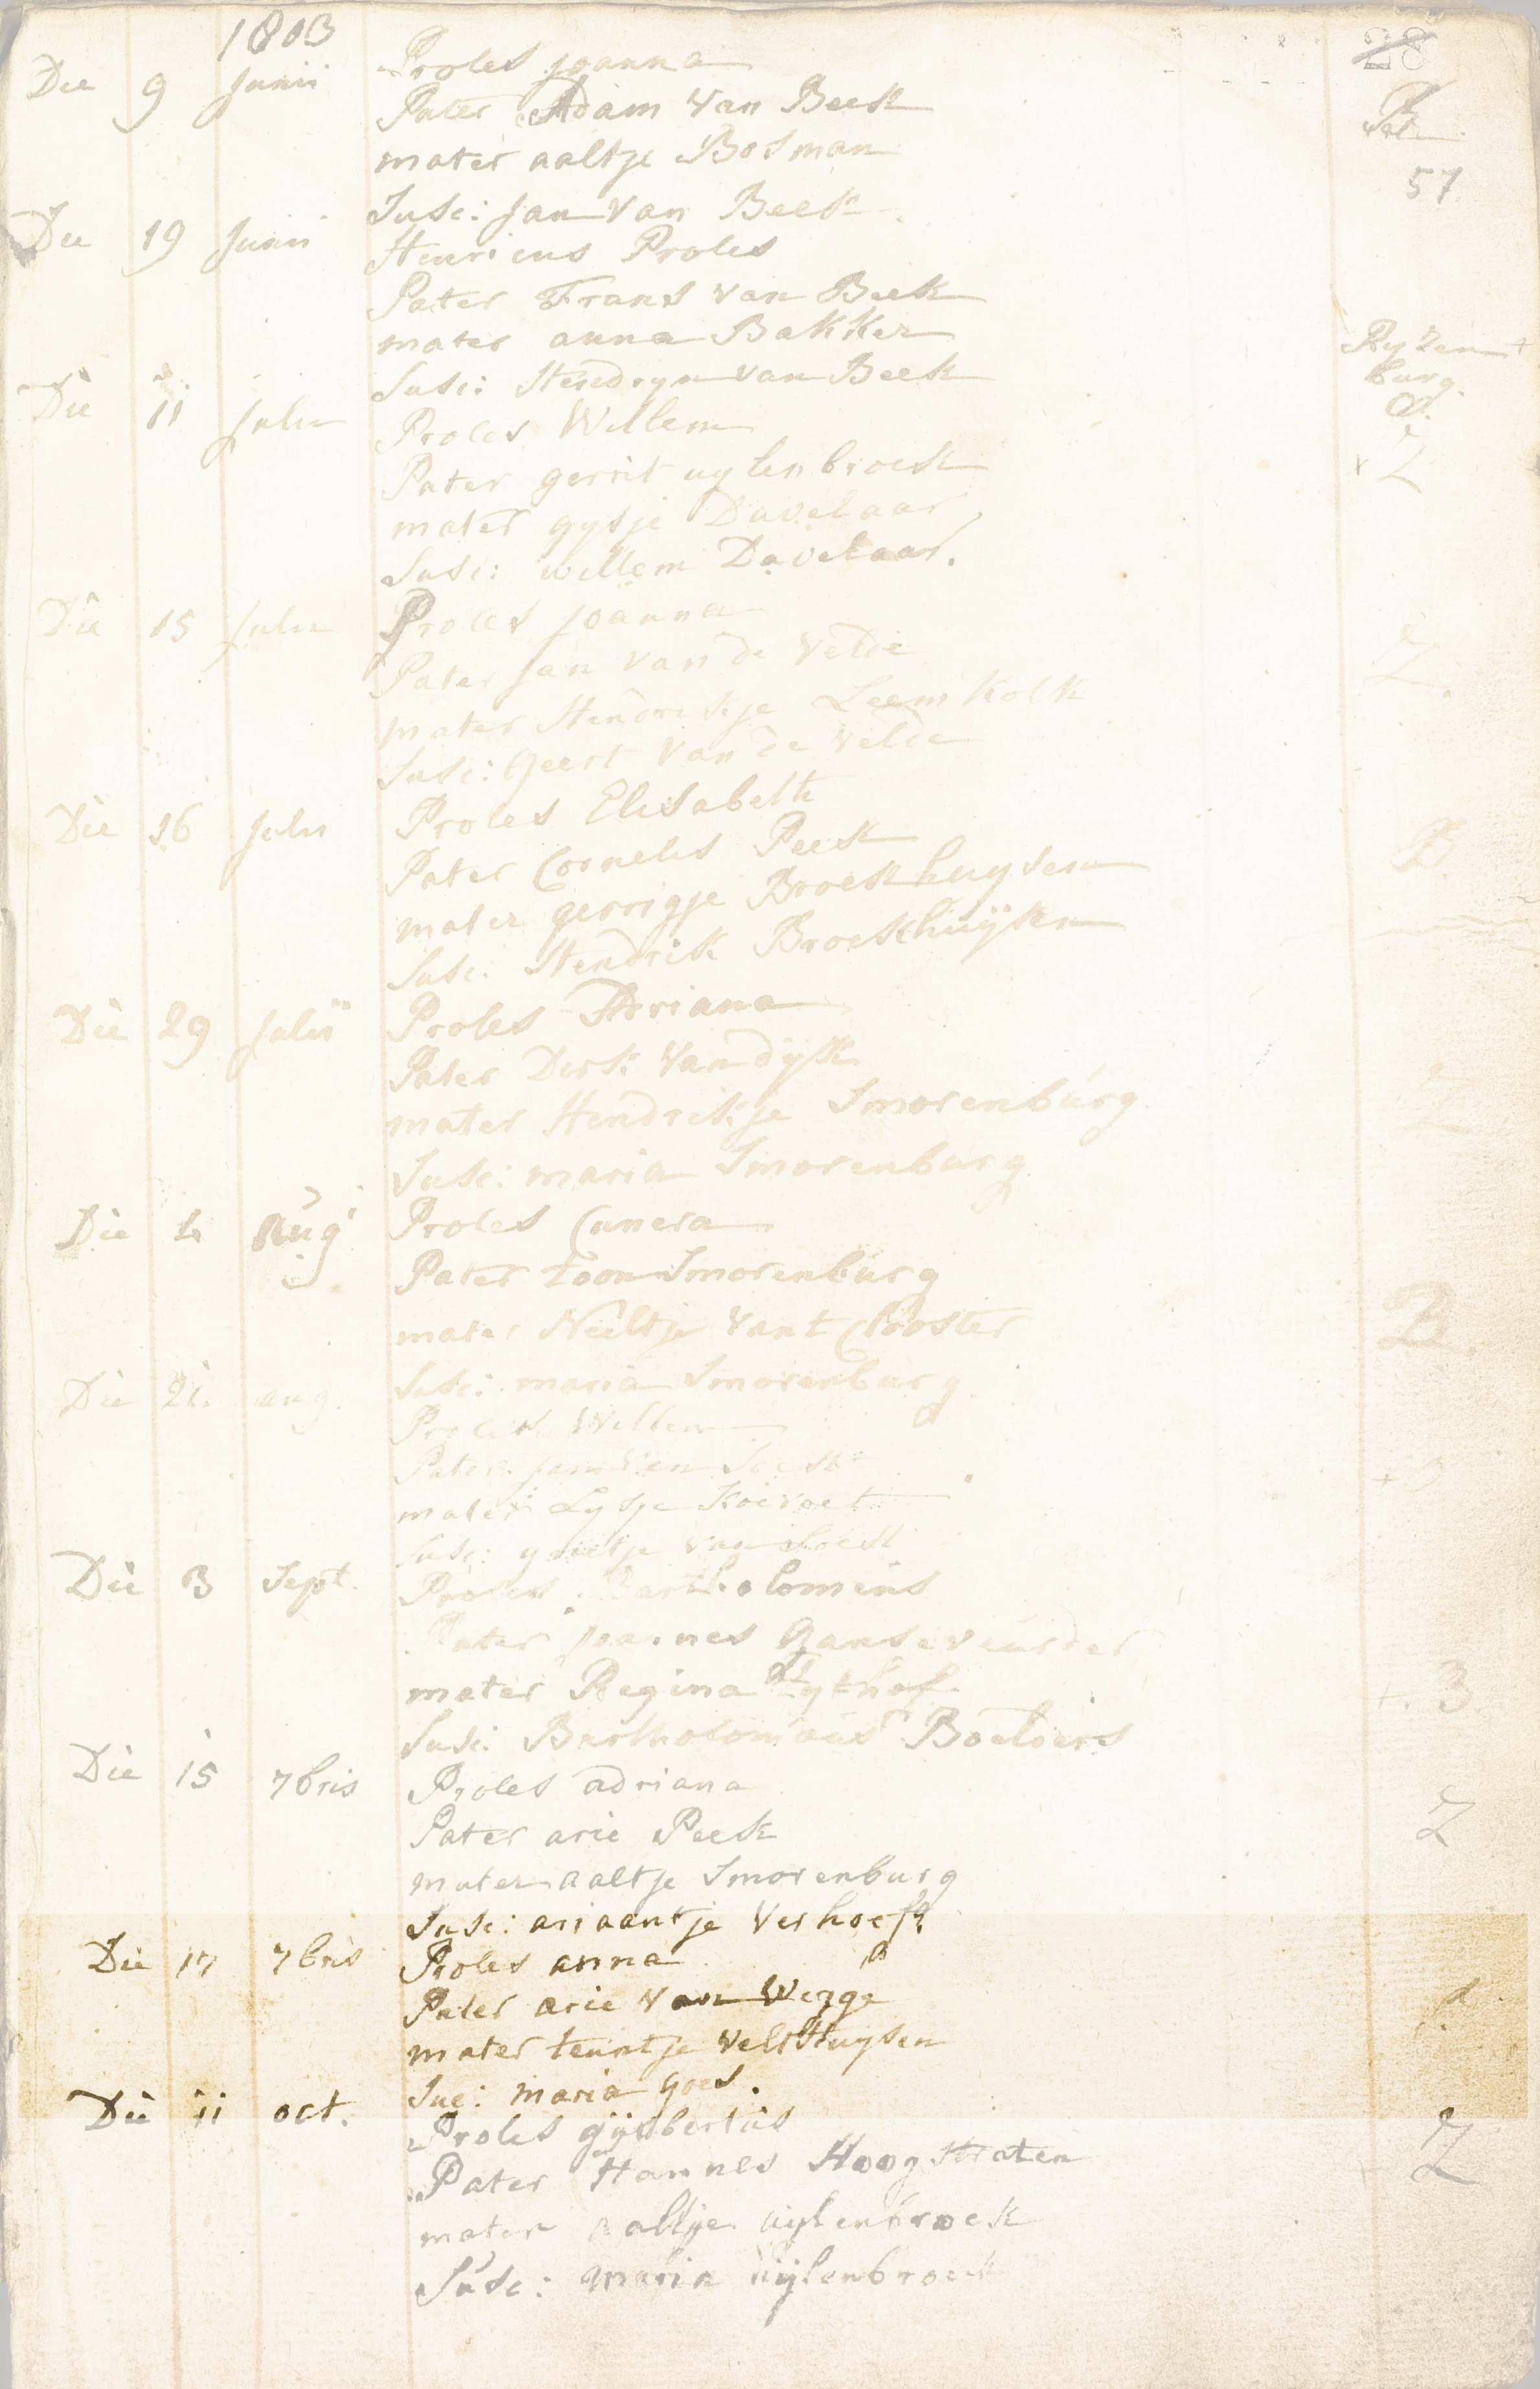 1803
28
Die 9 Junii Proles Joanna
Pater Adam van Beek
mater aaltje Bosman
57
Susc: Jan van Beek
Die 19 Junii Henricus Proles
Pater Frans van Beek
mater anna Bakker
Ryzen
burg
Susc: Hendryn van Beek
Die 11 Julii Proles Willem
Z
Pater gerrit uylenbroek
mater gysje Davelaar
Susc: willem Davelaar.
Die 15 Julii Proles Joanna
Z.
Pater Jan van de Velde
mater Hendrikje Leemkolk
Susc: Geert Van de Velde
Die 16 Julii Proles Elisabeth
B.
Pater Cornelis Peek
mater gerrigje Broekhuysen
Susc: Hendrik Broekhuÿsen
Die 29 Julii Proles Adriana
Pater Dirk Van dyk
Z
mater Hendrikje Smorenburg
Susc: maria Smorenburg
Die 1. Aug Proles Cunera
Pater toon Smorenburg
B.
mater Neeltje Van t Clooster
Susc: maria Smorenburg
Die 21. aug. Proles Willem
Pater Jan Van Soest
mater Lysje Koevoet
Susc: grietje van Soest
Die 3 Sept. Proles Bartholomeus
Pater Joannes Ganseveurder
mater Regina Zythof
+. B
Susc: Bartholomaus Boelders
Die 15 7bris Proles adriana
Z
Pater arie Peek
mater aaltje Smorenburg
Susc: ariaantje Verhoef
Die 17 7bris Proles anna
Pater arie van
mater teuntje Velthuysen
Suc: maria Goes.
Die 11 oct. Proles gijsbertus
Z
Pater Hannes Hoogstraten
mater aaltje uylenbroek
Susc: maria uijlenbroek